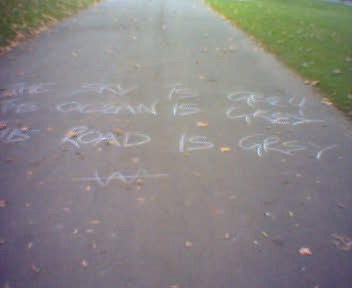 THE SKY IS GREY
THE OCEAN IS GREY
THE ROAD IS GREY